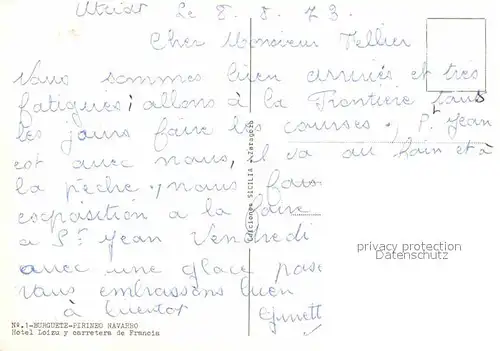 Le 8.8.73.
Cher Monsieur Tellier
Vous sommes bien arrivés et très
fatigués; allons à la Frontière tous
les jours faire les courses, P. Jean
est avec nous, il va au foin et à
la pêche, nous
exposition à la foire
à St Jean Vendredi
avec une glace
vous embrassons bien
à bientot
Ginett
privacy protection
Datenschutz
Ediciones SICILIA - Zaragoza
Nº.1-BURGUETE-PIRINEO NAVARRO
Hotel Loizu y carretera de Francia